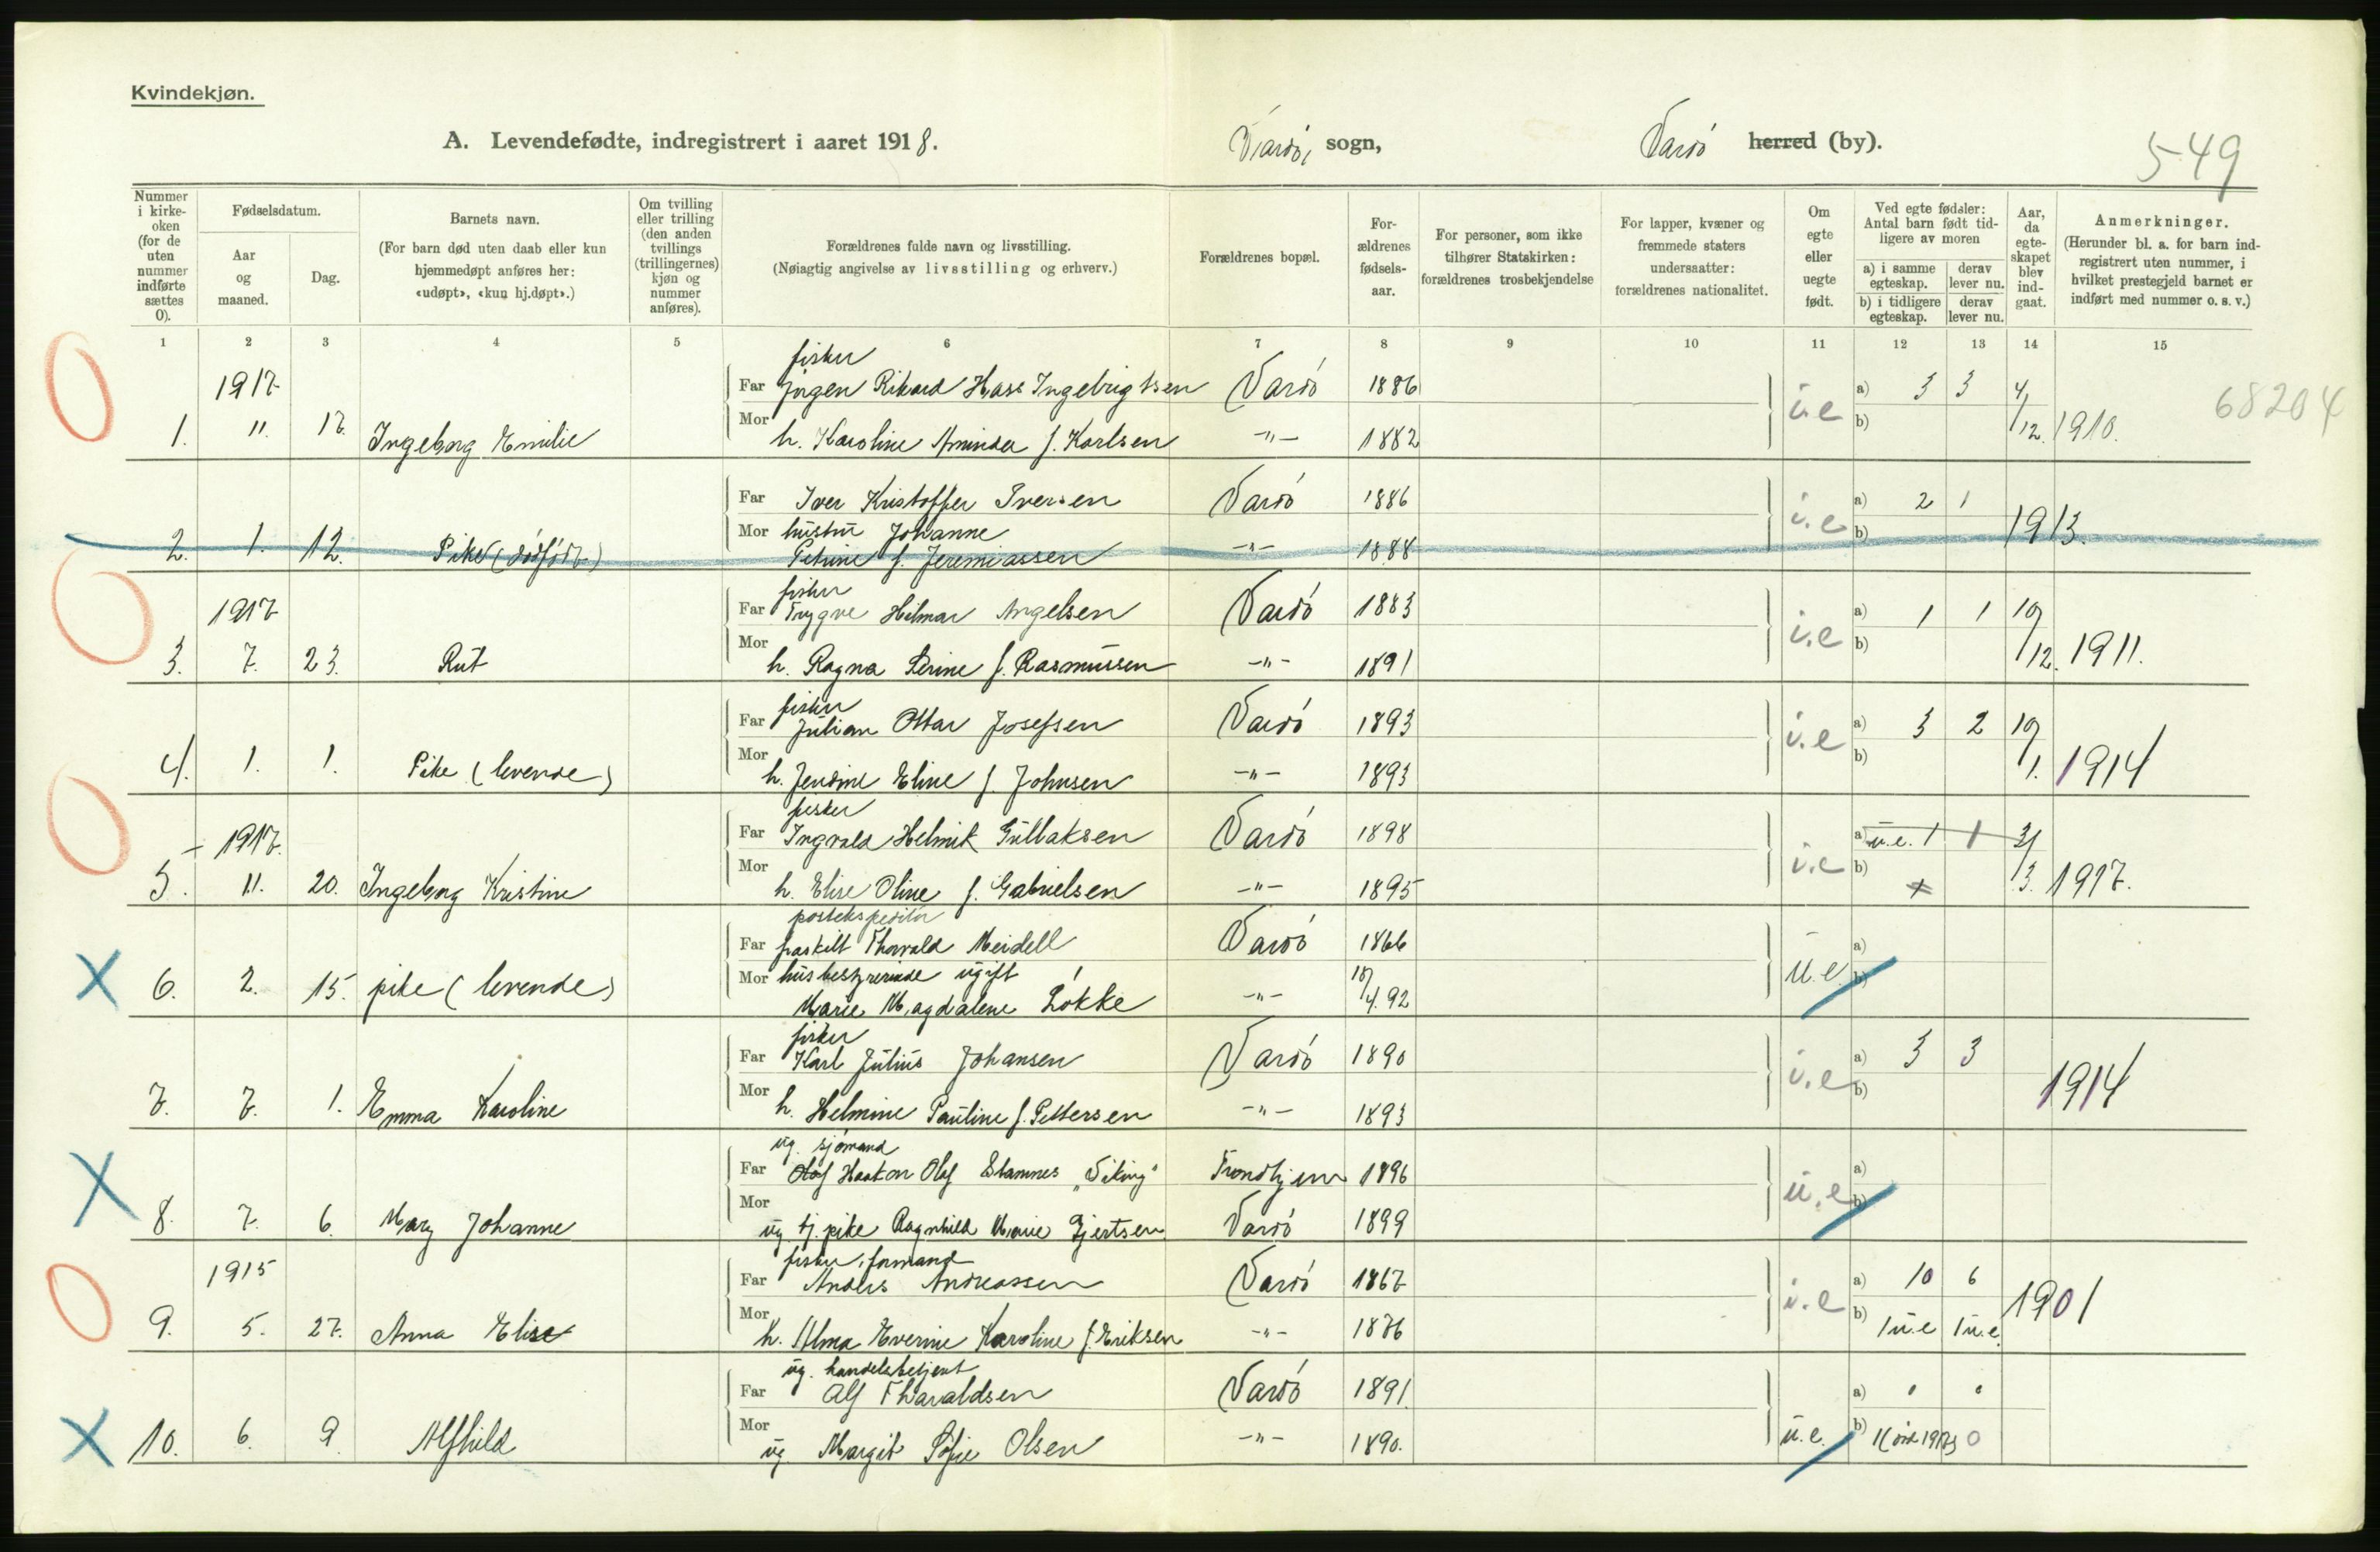 Kvindekjøn.
A. Levendefødte, indregistrert i aaret 1918.
Vardø, sogn,
Vardø herred (by).
549
Nummer i kirke-oken (for de uten nummer indførte sættes 0).
Fødselsdatum.
Aar og maaned.
Dag.
Barnets navn.
(For barn død uten daab eller kun hjemmedøpt anføres her: «udøpt», «kun hj.døpt».)
Om tvilling eller trilling (den anden tvillings (trillingernes) kjøn og nummer anføres).
Forældrenes fulde navn og livsstilling.
(Nøiagtig angivelse av livsstilling og erhverv.)
Forældrenes bopæl.
For-ældrenes fødsels-aar.
For personer, som ikke tilhører Statskirken: forældrenes trosbekjendelse
For lapper, kvæner og fremmede staters undersaatter: forældrenes nationalitet.
Om egte eller uegte født.
Ved egte fødsler: Antal barn født tid-ligere av moren
a) i samme egteskap.
derav lever nu.
b) i tidligere egteskap.
derav lever nu.
Aar, da egte-skapet blev ind-gaat.
Anmerkninger.
(Herunder bl. a. for barn ind-registrert uten nummer, i hvilket prestegjeld barnet er indført med nummer o. s. v.)
1 2 3 4 5 6 7 8 9 10 11 12 13 14 15
fisker
1917 Far Jørgen Rikard Hass Ingebrigtsen Vardø 1886 i.e a) 3 3 4/12. 1910. 68204
1. 11. 17. Ingeborg Emilie Mor h. Karoline Aminda f. Karlsen -"- 1882 b)
Far Iver Kristoffer Iversen Vardø 1886 i.e a) 2 1 1913.
Mor hustru Johanne b)
2. 1. 12. Pike (dødfødt) Petrine f. Jeremiassen -"- 1888
fisker
1917 Far Trygve Hilmar Angelsen Vardø 1883 i.e a) 1 1 10/12. 1911.
3. 7. 23. Rut Mor h. Ragna Serine f. Rasmussen -"- 1891 b)
fisker
Far Julian Ottar Josefsen Vardø 1893 i.e a) 3 2 10/1. 1914
4. 1. 1. Pike (levende) Mor h. Jensine Eline f. Johnsen -"- 1893 b)
fisker
1917. Far Ingvald Helmik Gullaksen Vardø 1898 i.e a) u.e. 1 1 3/3. 1917.
5. 11. 20. Ingeborg Kristine Mor h. Elise Oline f. Gabrielsen -"- 1895 b)
postekspeditør
Far fraskilt Thorvald Meidell Vardø 1866 u.e. a)
Mor husbestyrerinde ugift 10/4.92 b)
6. 2. 15. pike (levende) Marie Magdalene Løkke -"-
fisker
Far Karl Julius Johansen Vardø 1890 i.e a) 3 3 1914
7. 7. 1. Emma Karoline Mor h. Helmine Pauline f. Pettersen -"- 1893 b)
ug. sjømand
Far Olaf Haakon Olaf Stamnes "Viking" Trondhjem 1896 u.e a)
8. 7. 6. Mary Johanne Mor ug. tj. pike Ragnhild Marie Gjertsen Vardø 1899 b)
fisker, formand
1915 Far Anders Andreassen Vardø 1867 i.e a) 10 6 1901
9. 5. 27. Anna Elise Mor h. Alma Everine Karoline f. Eriksen -"- 1876 b) 1 u.e 1 u.e.
ug. handelsbetjent
Far Alf Tharaldsen Vardø 1891. u.e. a)
10. 6. 9. Alfhild Mor ug. Margit Sofie Olsen -"- 1890. b) 0